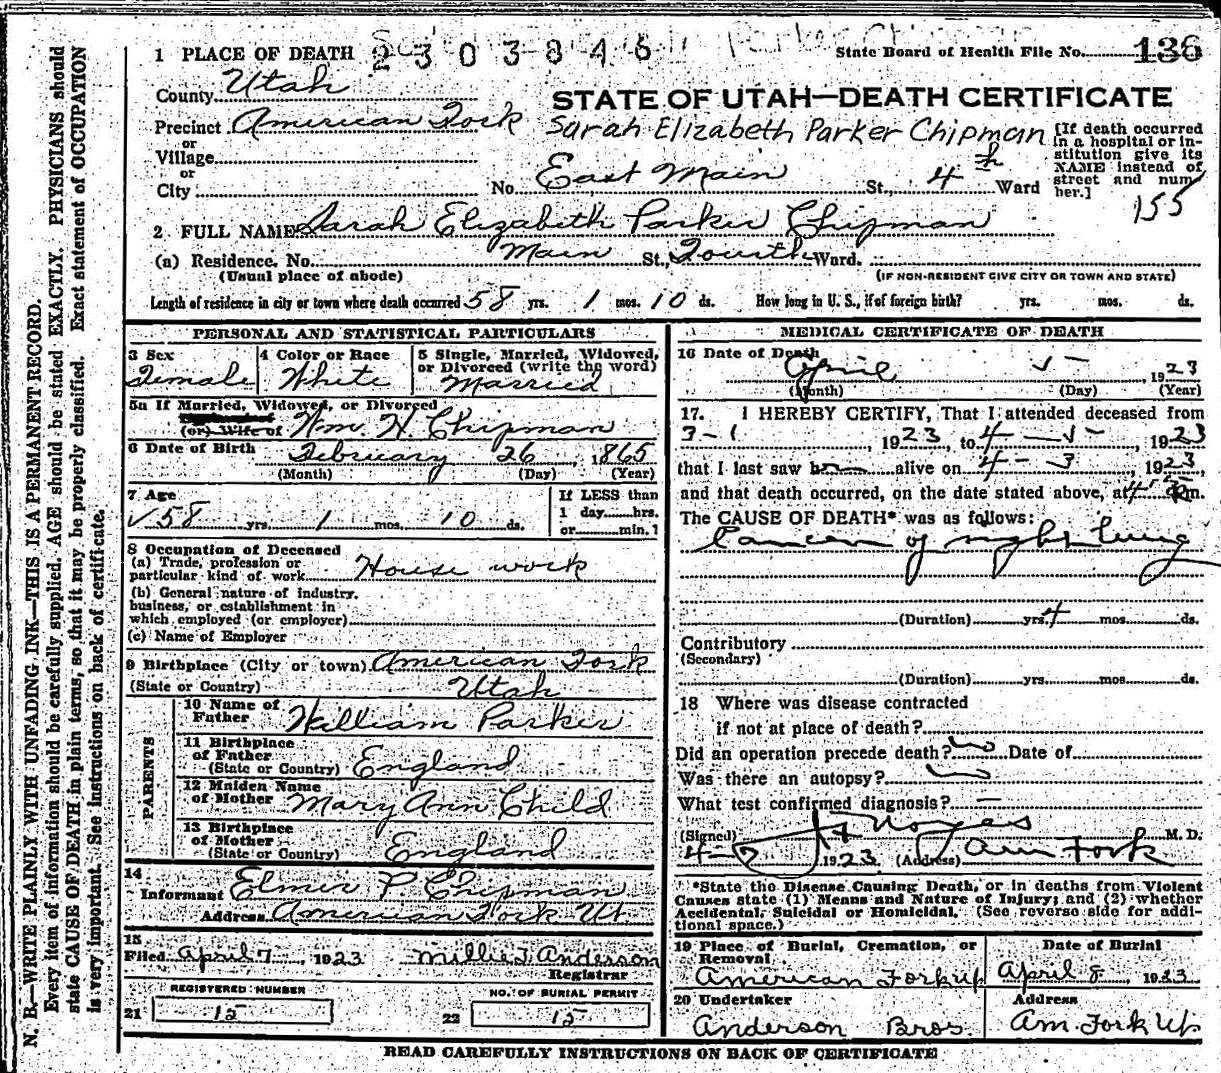 1 PLACE OF DEATH 2303846
State Board of Health File No. 136
County Utah
STATE OF UTAH—DEATH CERTIFICATE
Precinct American Fork
Sarah Elizabeth Parker Chipman
[If death occurred in a hospital or institution give its NAME instead of street and number.]
or
Village
or
City
No. East Main St., 4th Ward
155
2 FULL NAME Sarah Elizabeth Parker Chipman
(a) Residence. No. Main St., Fourth Ward.
(Usual place of abode) (IF NON-RESIDENT GIVE CITY OR TOWN AND STATE)
Length of residence in city or town where death occurred 58 yrs. 1 mos. 10 ds. How long in U. S., if of foreign birth? yrs. mos. ds.
PERSONAL AND STATISTICAL PARTICULARS
3 Sex Female
4 Color or Race White
5 Single, Married, Widowed, or Divorced (write the word) Married
5a If Married, Widowed, or Divorced
(or) Wife of Wm. H. Chipman
6 Date of Birth February 26, 1865
(Month) (Day) (Year)
7 Age
58 yrs. 1 mos. 10 ds.
If LESS than
1 day hrs.
or min.?
8 Occupation of Deceased
(a) Trade, profession or particular kind of work House work
(b) General nature of industry, business, or establishment in which employed (or employer)
(c) Name of Employer
9 Birthplace (City or town) American Fork
(State or Country) Utah
PARENTS
10 Name of Father William Parker
11 Birthplace of Father (State or Country) England
12 Maiden Name of Mother Mary Ann Child
13 Birthplace of Mother (State or Country) England
14
Informant Elmer P Chipman
Address American Fork Ut
15
Filed April 7, 1923 Millie Anderson
Registrar
REGISTERED NUMBER
21 15
NO. OF BURIAL PERMIT
22 15
MEDICAL CERTIFICATE OF DEATH
16 Date of Death
April 5, 1923
(Month) (Day) (Year)
17. I HEREBY CERTIFY, That I attended deceased from
3-1 1923, to 4-5, 1923
that I last saw alive on 4-3, 1923,
and that death occurred, on the date stated above, at m.
The CAUSE OF DEATH* was as follows:
Cancer of right lung
(Duration) yrs. 4 mos. ds.
Contributory
(Secondary)
(Duration) yrs. mos. ds.
18 Where was disease contracted
if not at place of death?
Did an operation precede death? no Date of
Was there an autopsy? no
What test confirmed diagnosis? —
(Signed) Noyes M. D.
4-7 1923 (Address) Am Fork
*State the Disease Causing Death, or in deaths from Violent
Causes state (1) Means and Nature of Injury; and (2) whether
Accidental, Suicidal or Homicidal. (See reverse side for additional space.)
19 Place of Burial, Cremation, or Removal
American Fork
Date of Burial
April 8, 1923
20 Undertaker
Anderson Bros.
Address
Am. Fork
READ CAREFULLY INSTRUCTIONS ON BACK OF CERTIFICATE
N. B.—WRITE PLAINLY WITH UNFADING INK—THIS IS A PERMANENT RECORD.
Every item of information should be carefully supplied. AGE should be stated EXACTLY. PHYSICIANS should
state CAUSE OF DEATH in plain terms, so that it may be properly classified. Exact statement of OCCUPATION
is very important. See instructions on back of certificate.